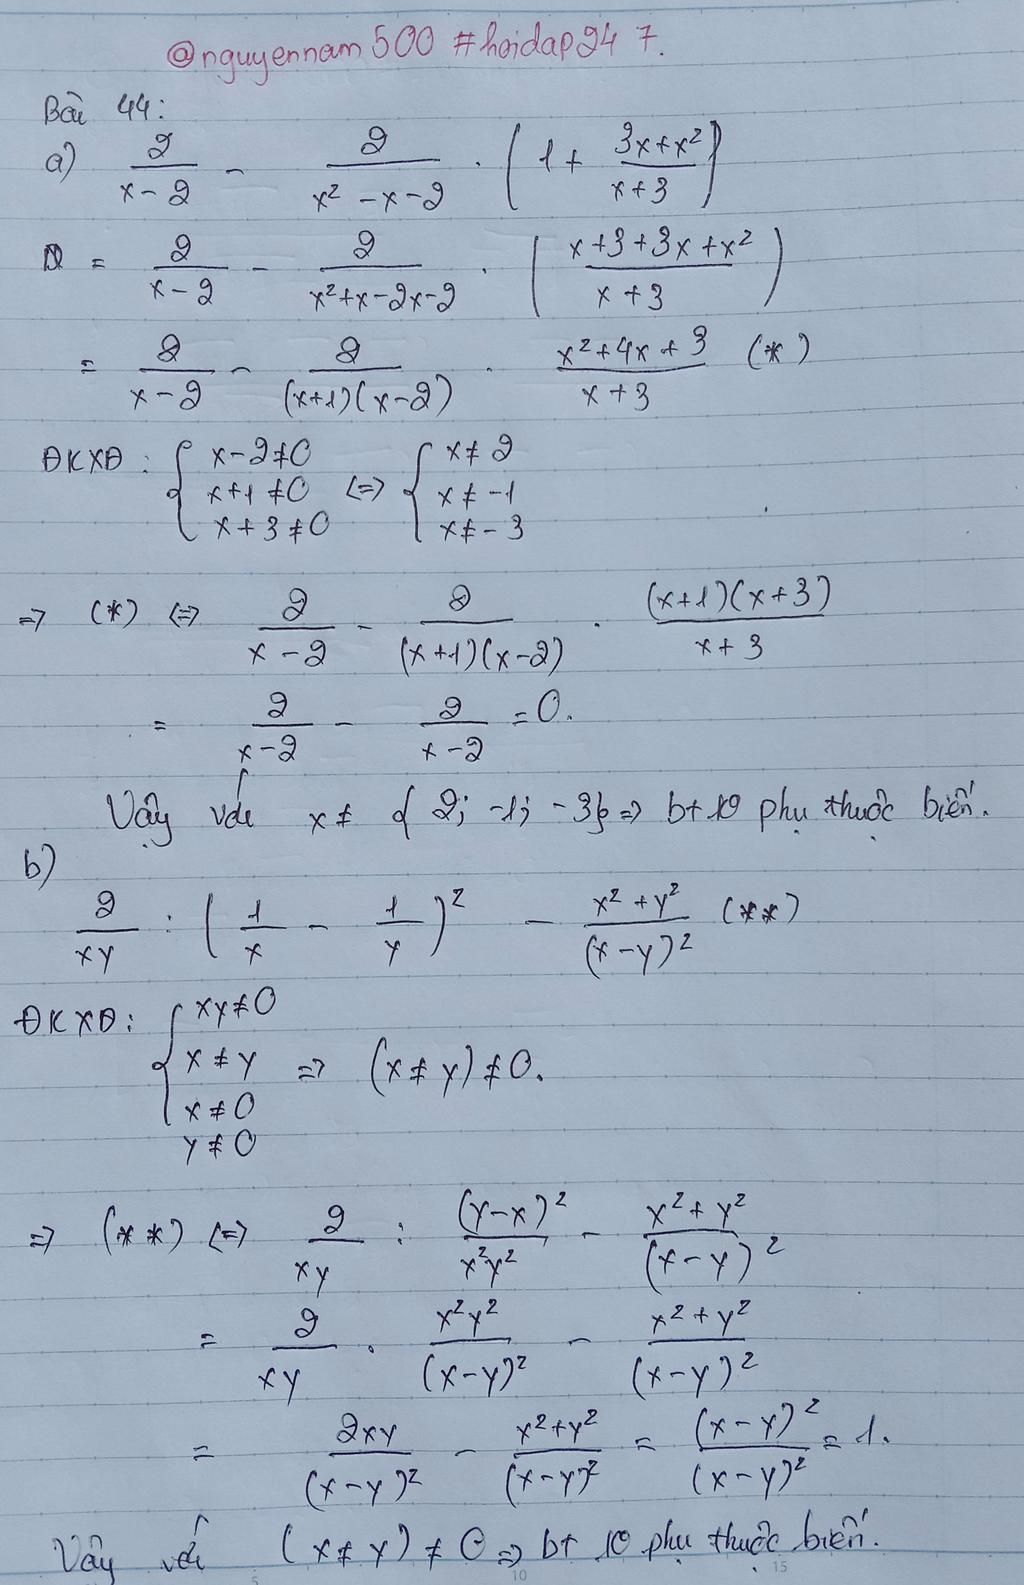 @nguyennam500 #hoidap247.
Bài 44:
a) 2/(x-2) - 2/(x² -x-2) . (1 + (3x+x²)/(x+3))
= 2/(x-2) - 2/(x²+x-2x-2) . ((x+3+3x+x²)/(x+3))
= 2/(x-2) - 2/((x+1)(x-2)) . (x²+4x+3)/(x+3) (*)
ĐKXĐ: { x-2≠0 ; x+1≠0 ; x+3≠0 <=> { x≠2 ; x≠-1 ; x≠-3
=> (*) <=> 2/(x-2) - 2/((x+1)(x-2)) . ((x+1)(x+3))/(x+3)
= 2/(x-2) - 2/(x-2) = 0.
Vậy với x≠ {2; -1; -3} => bt ko phụ thuộc biến.
b)
2/(xy) : (1/x - 1/y)² - (x²+y²)/(x-y)² (**)
ĐKXĐ: { xy≠0 ; x≠y ; x≠0 ; y≠0 => (x≠y)≠0.
=> (**) <=> 2/(xy) : (y-x)²/(x²y²) - (x²+y²)/(x-y)²
= 2/(xy) . x²y²/(x-y)² - (x²+y²)/(x-y)²
= 2xy/(x-y)² - (x²+y²)/(x-y)² = (x-y)²/(x-y)² = 1.
Vậy với (x≠y)≠0 => bt ko phụ thuộc biến.
5 10 15